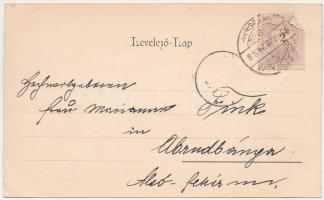 Levelező-Lap
2
Hochwohlgeboren
Frau Marianne Fink
in
Abrudbánya
Alsó-fehér m.